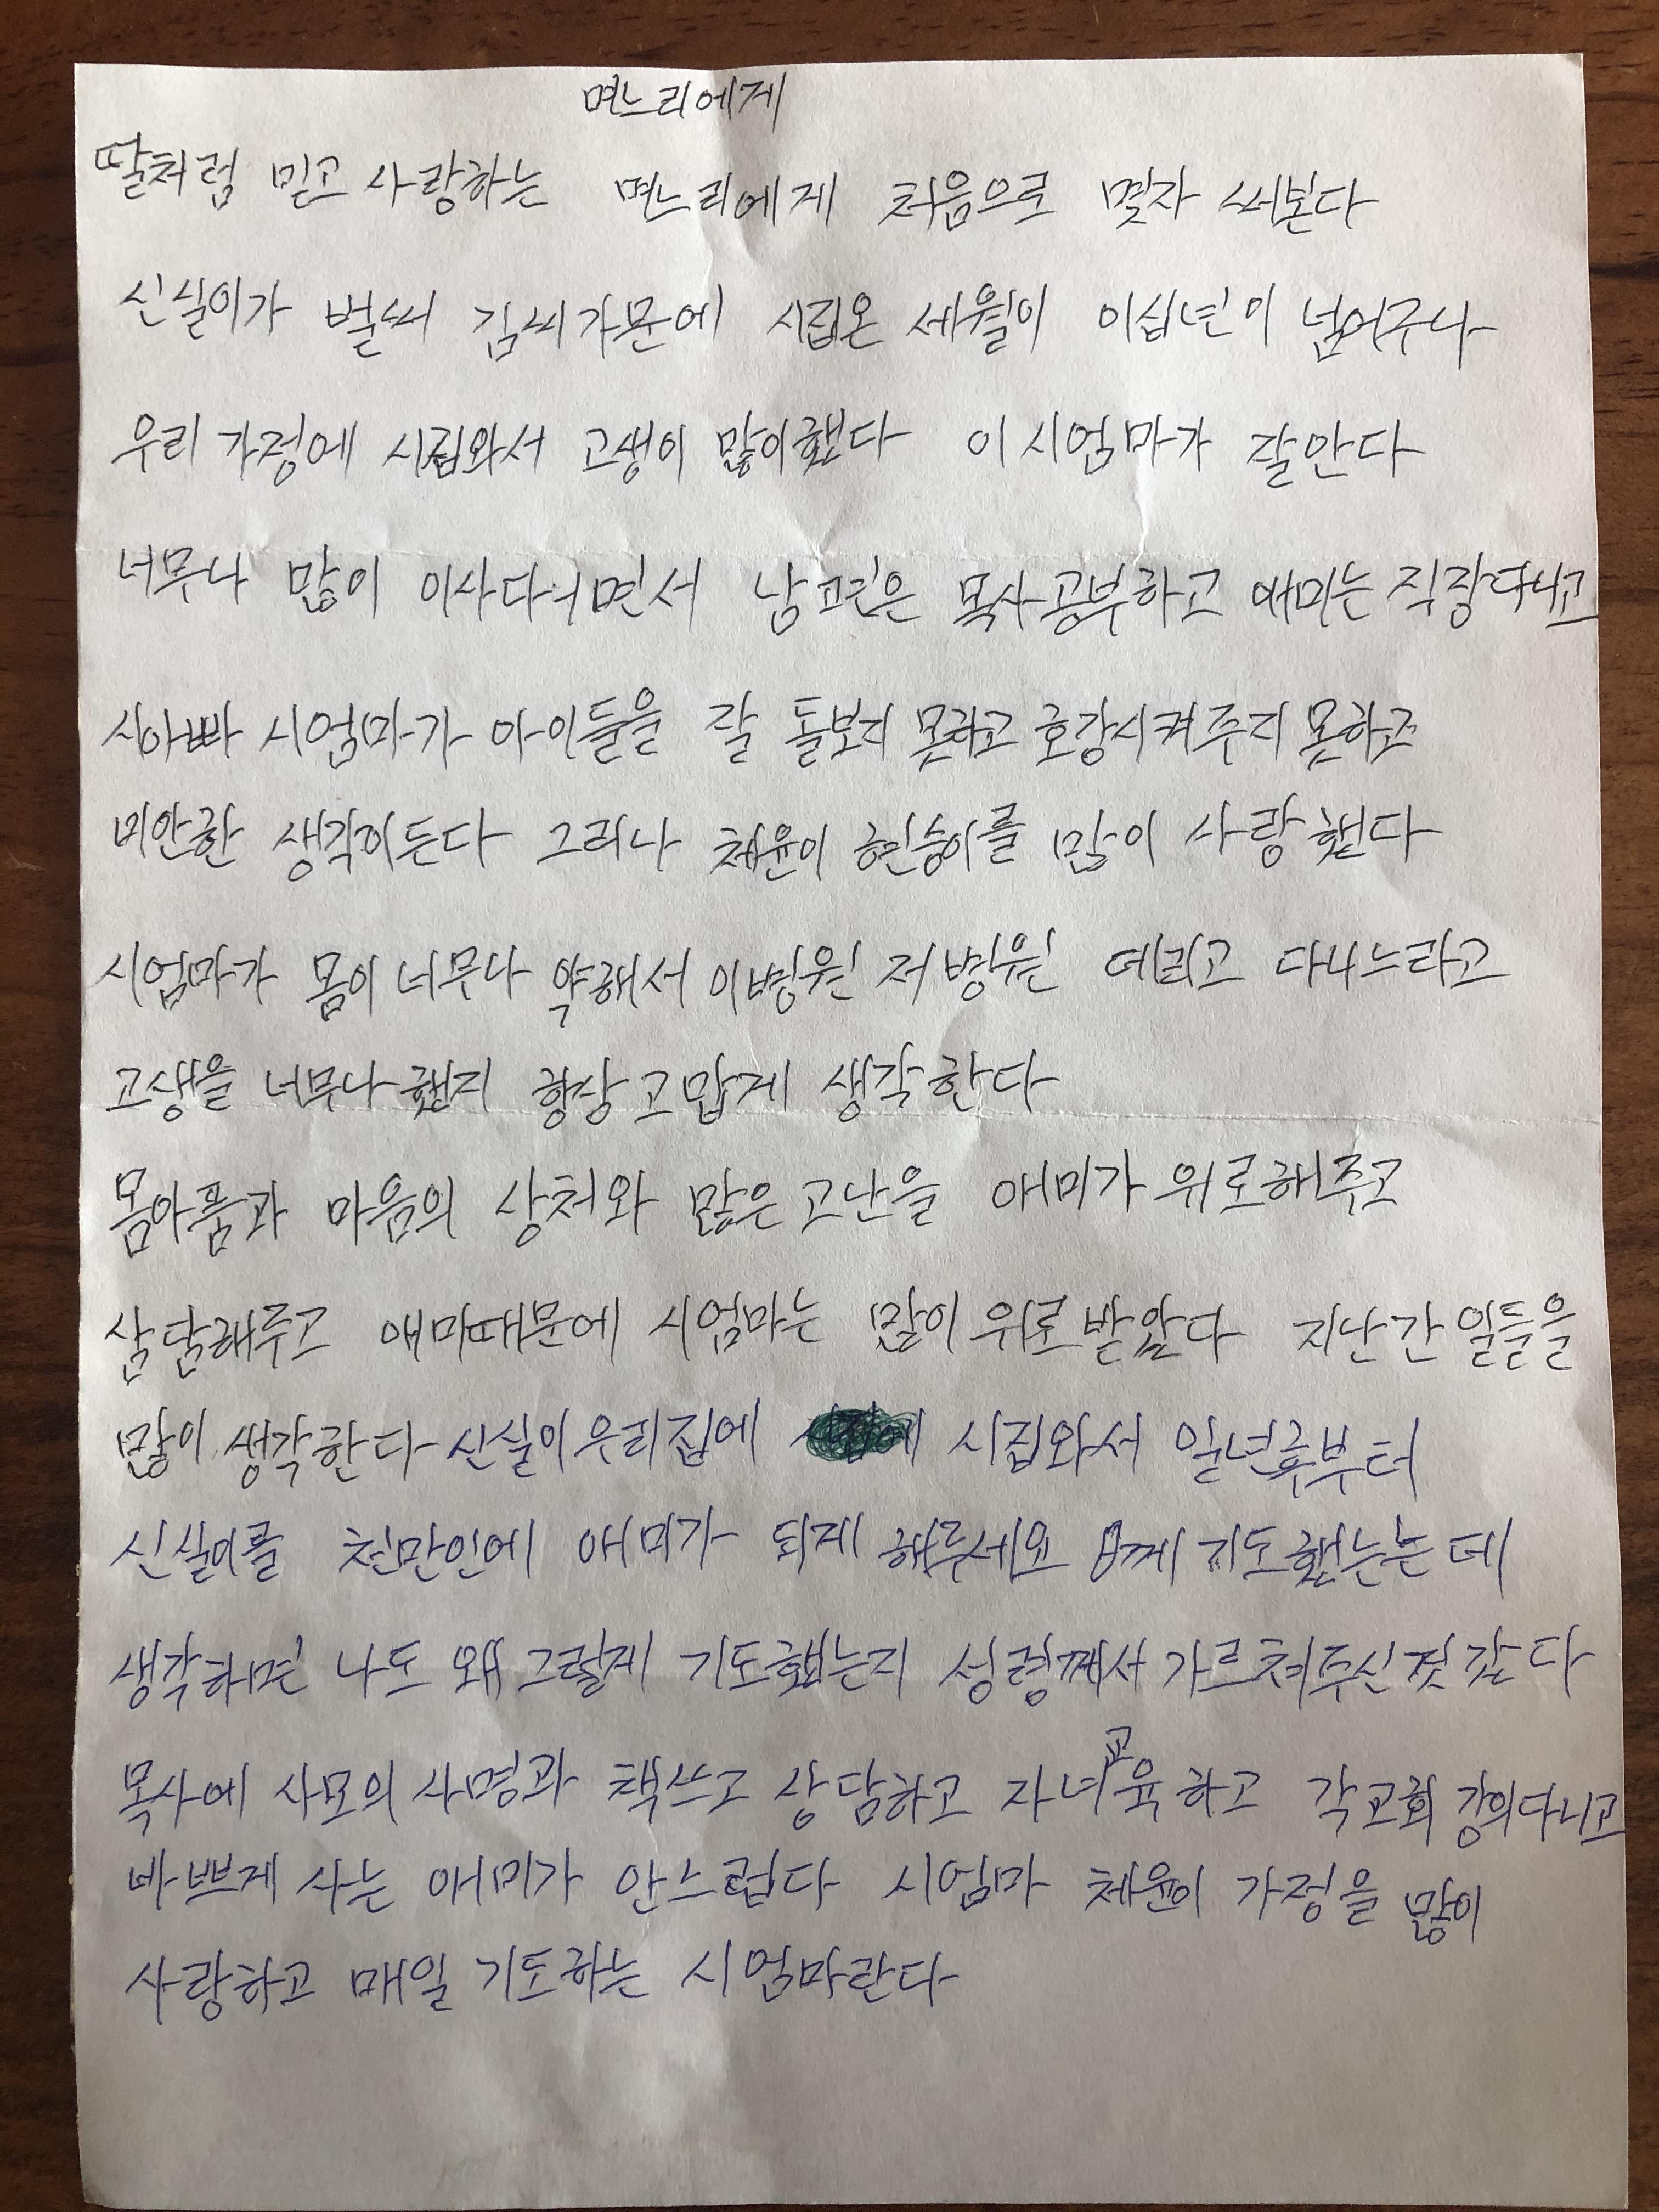 며느리에게
딸처럼 믿고 사랑하는 며느리에게 처음으로 몇자 써본다
신실이가 벌써 김씨가문에 시집온 세월이 이십년이 넘어구나
우리 가정에 시집와서 고생이 많이했다 이 시엄마가 잘안다
너무나 많이 이사다니면서 남편은 목사공부하고 애미는 직장다니고
시아빠 시엄마가 아이들을 잘 돌보지 못하고 호강시켜주지 못하고
미안한 생각이든다 그러나 채윤이 현승이를 많이 사랑했다
시엄마가 몸이 너무나 약해서 이병원 저병원 데리고 다니느라고
고생을 너무나 했지 항상 고맙게 생각한다
몸아품과 마음의 상처와 많은 고난을 애미가 위로해주고
상담해주고 애미때문에 시엄마는 많이 위로 받았다 지난간 일들을
많이 생각한다 신실이 우리집에 시집와서 일년후부터
신실이를 천만인에 애미가 되게 해주세요 기도했는는데
생각하면 나도 왜 그렇게 기도했는지 성령께서 가르쳐주신것 같다
목사에 사모의 사명과 책쓰고 상담하고 자녀교육하고 각교회 강의다니고
바쁘게 사는 애미가 안느럽다 시엄마 채윤이 가정을 많이
사랑하고 매일 기도하는 시엄마란다